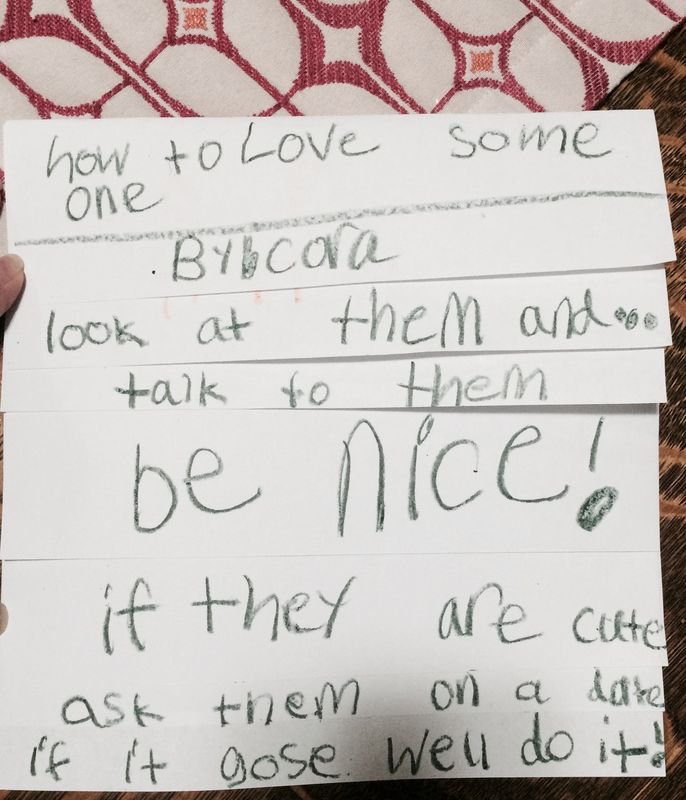 how to Love some
one
By cora
look at them and...
talk to them
be nice!
if they are cute
ask them on a date
if it gose well do it!